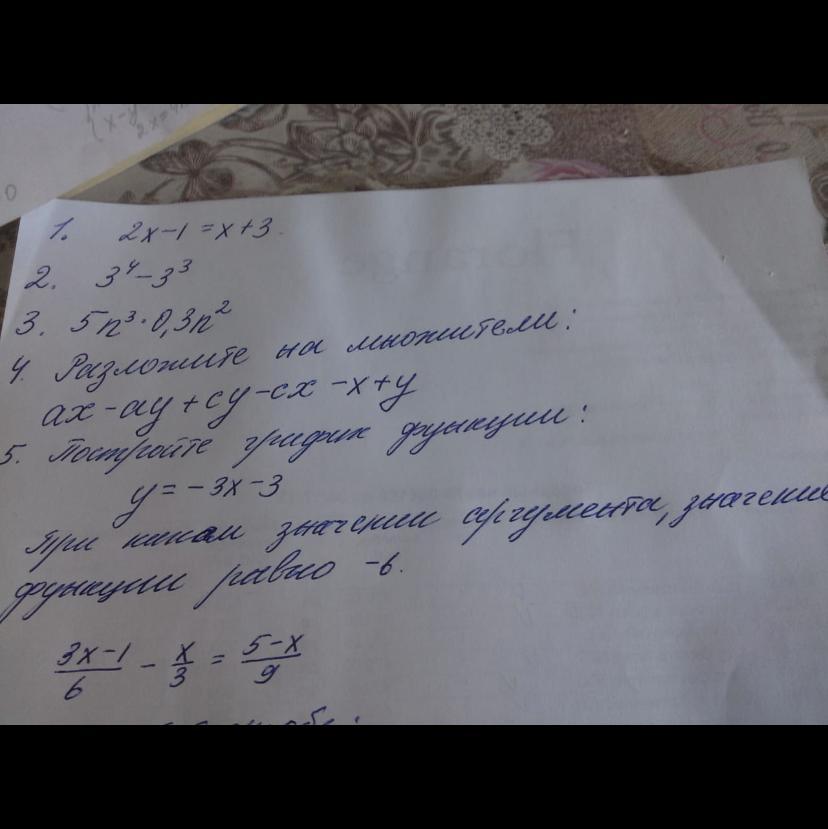 1. 2x-1=x+3.
2. 3⁴-3³
3. 5n³·0,3n²
4. Разложите на множители:
ax-ay+cy-cx-x+y
5. Постройте график функции:
y=-3x-3
При каком значении аргумента, значение
функции равно -6.
(3x-1)/6 - x/3 = (5-x)/9